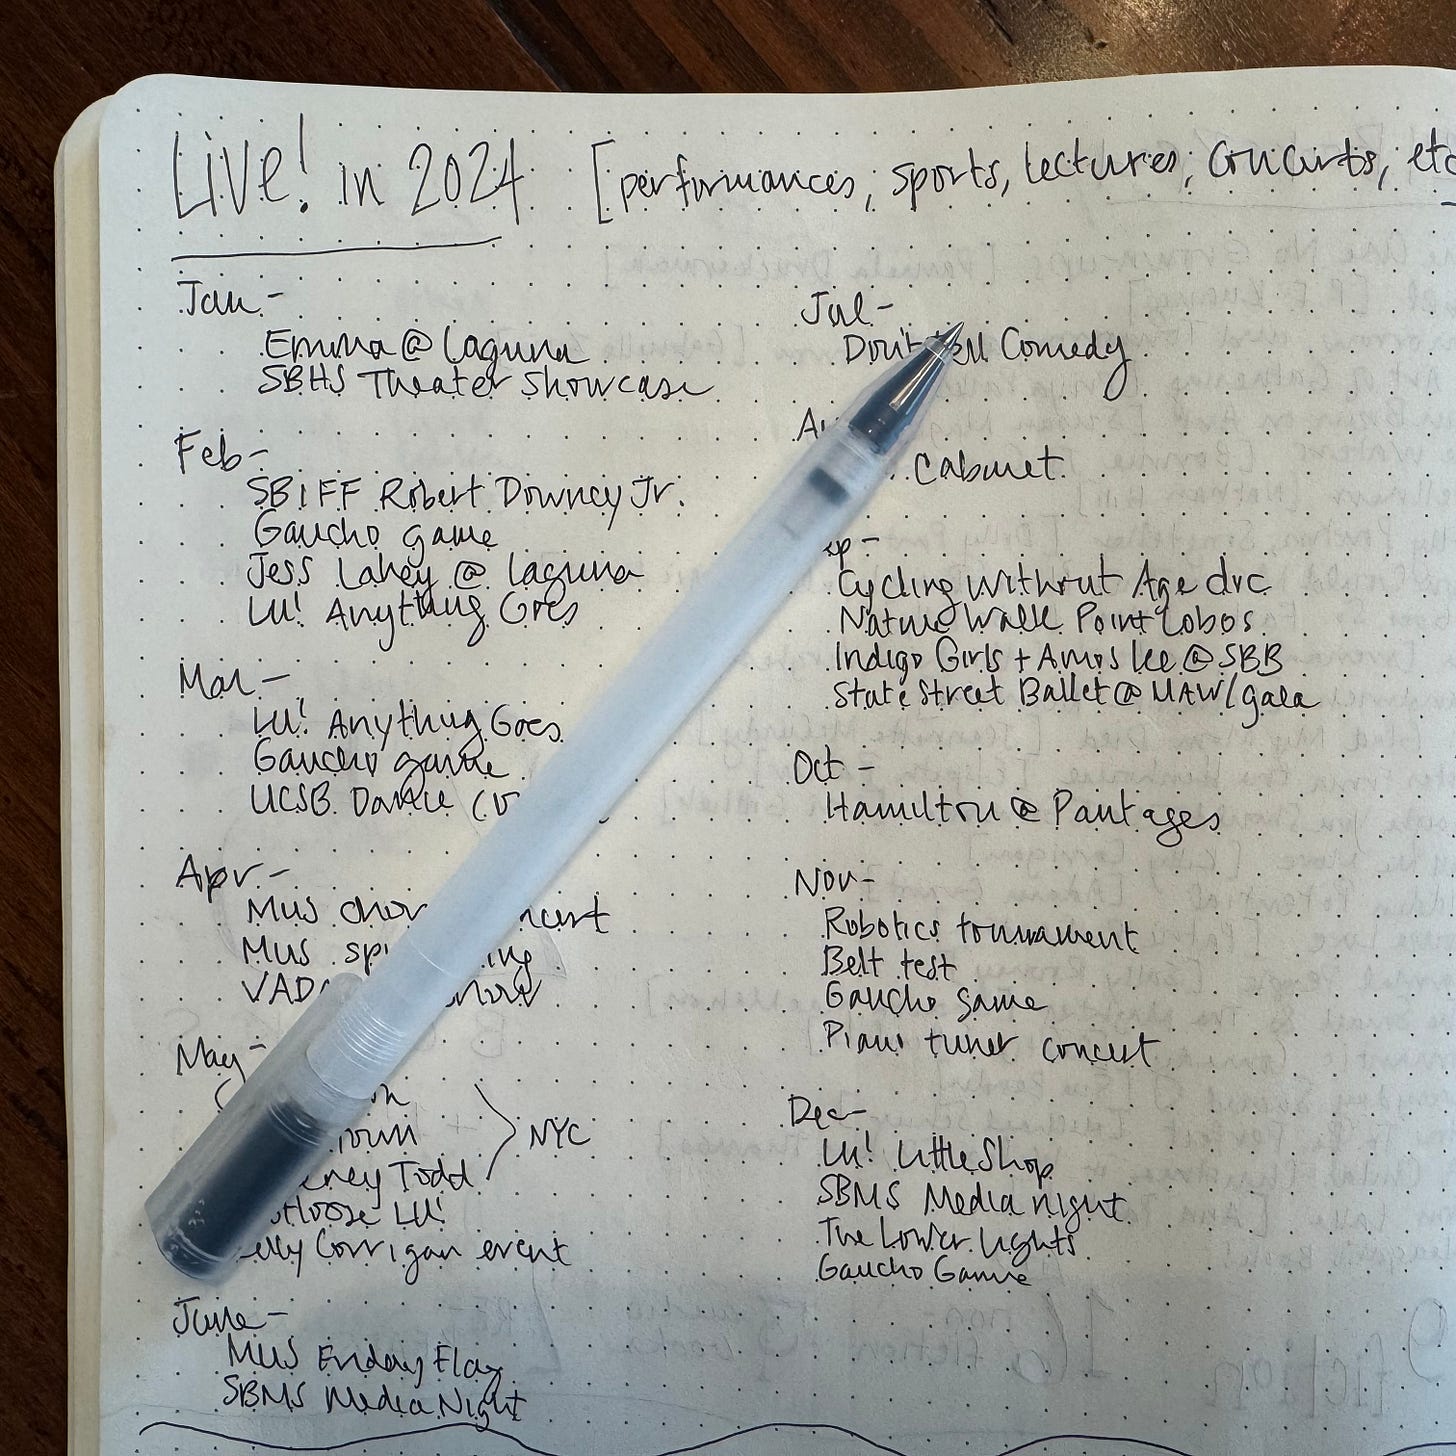 Live! in 2024 [performances, sports, lectures, concerts, etc
Jan-
Emma @ Laguna
SBHS Theater Showcase
Feb-
SBIFF Robert Downey Jr.
Gaucho game
Jess Lahey @ Laguna
LU! Anything Goes
Mar-
LU! Anything Goes
Gaucho game
UCSB Dance
Apr-
MUS
MUS
May-
NYC
Todd
LU!
Corrigan event
June-
MUS Friday Flag
SBMS Media Night
Jul-
Don't Comedy
Cabaret
Cycling Without Age dvc
Nature Walk Point Lobos
Indigo Girls + Amos Lee @ SBB
State Street Ballet @ MAW/gala
Oct-
Hamilton @ Pantages
Nov-
Robotics tournament
Belt test
Gaucho game
Piano tuner concert
Dec-
LU! Little Shop
SBMS Media night
The Lower Lights
Gaucho Game